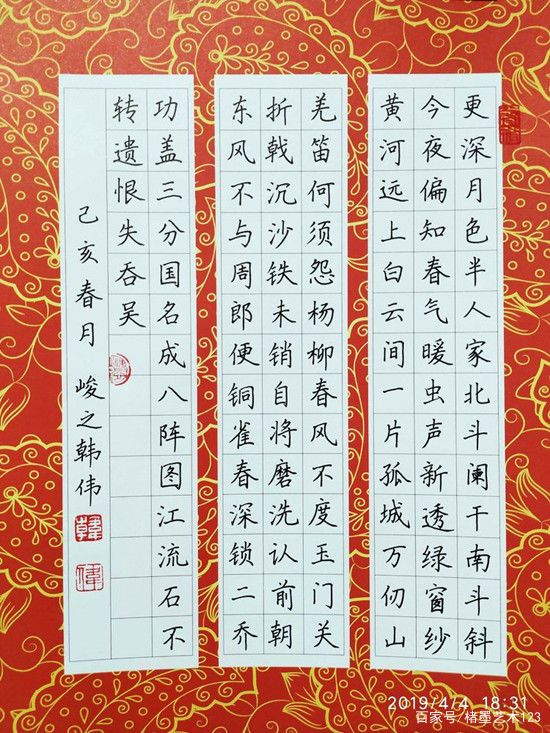 更深月色半人家北斗阑干南斗斜
今夜偏知春气暖虫声新透绿窗纱
黄河远上白云间一片孤城万仞山
羌笛何须怨杨柳春风不度玉门关
折戟沉沙铁未销自将磨洗认前朝
东风不与周郎便铜雀春深锁二乔
功盖三分国名成八阵图江流石不
转遗恨失吞吴
己亥春月 峻之韩伟
韓
偉
2019/4/4 18:31
百家号/楮墨艺术123